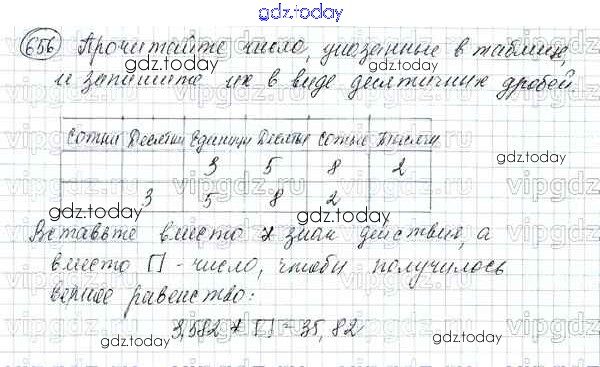 gdz.today
656 Прочитайте число, указанные в таблице,
gdz.today
и запишите их в виде десятичных дробей.
Сотни Десятки Единицы Десятые Сотые Тысячн
3 5 8 2
3 5 8 2
gdz.today
gdz.today
Вставьте вместо * знак действия, а
вместо П - число, чтобы получилось
верное равенство:
3,582 * П = 35,82
gdz.today
gdz.today